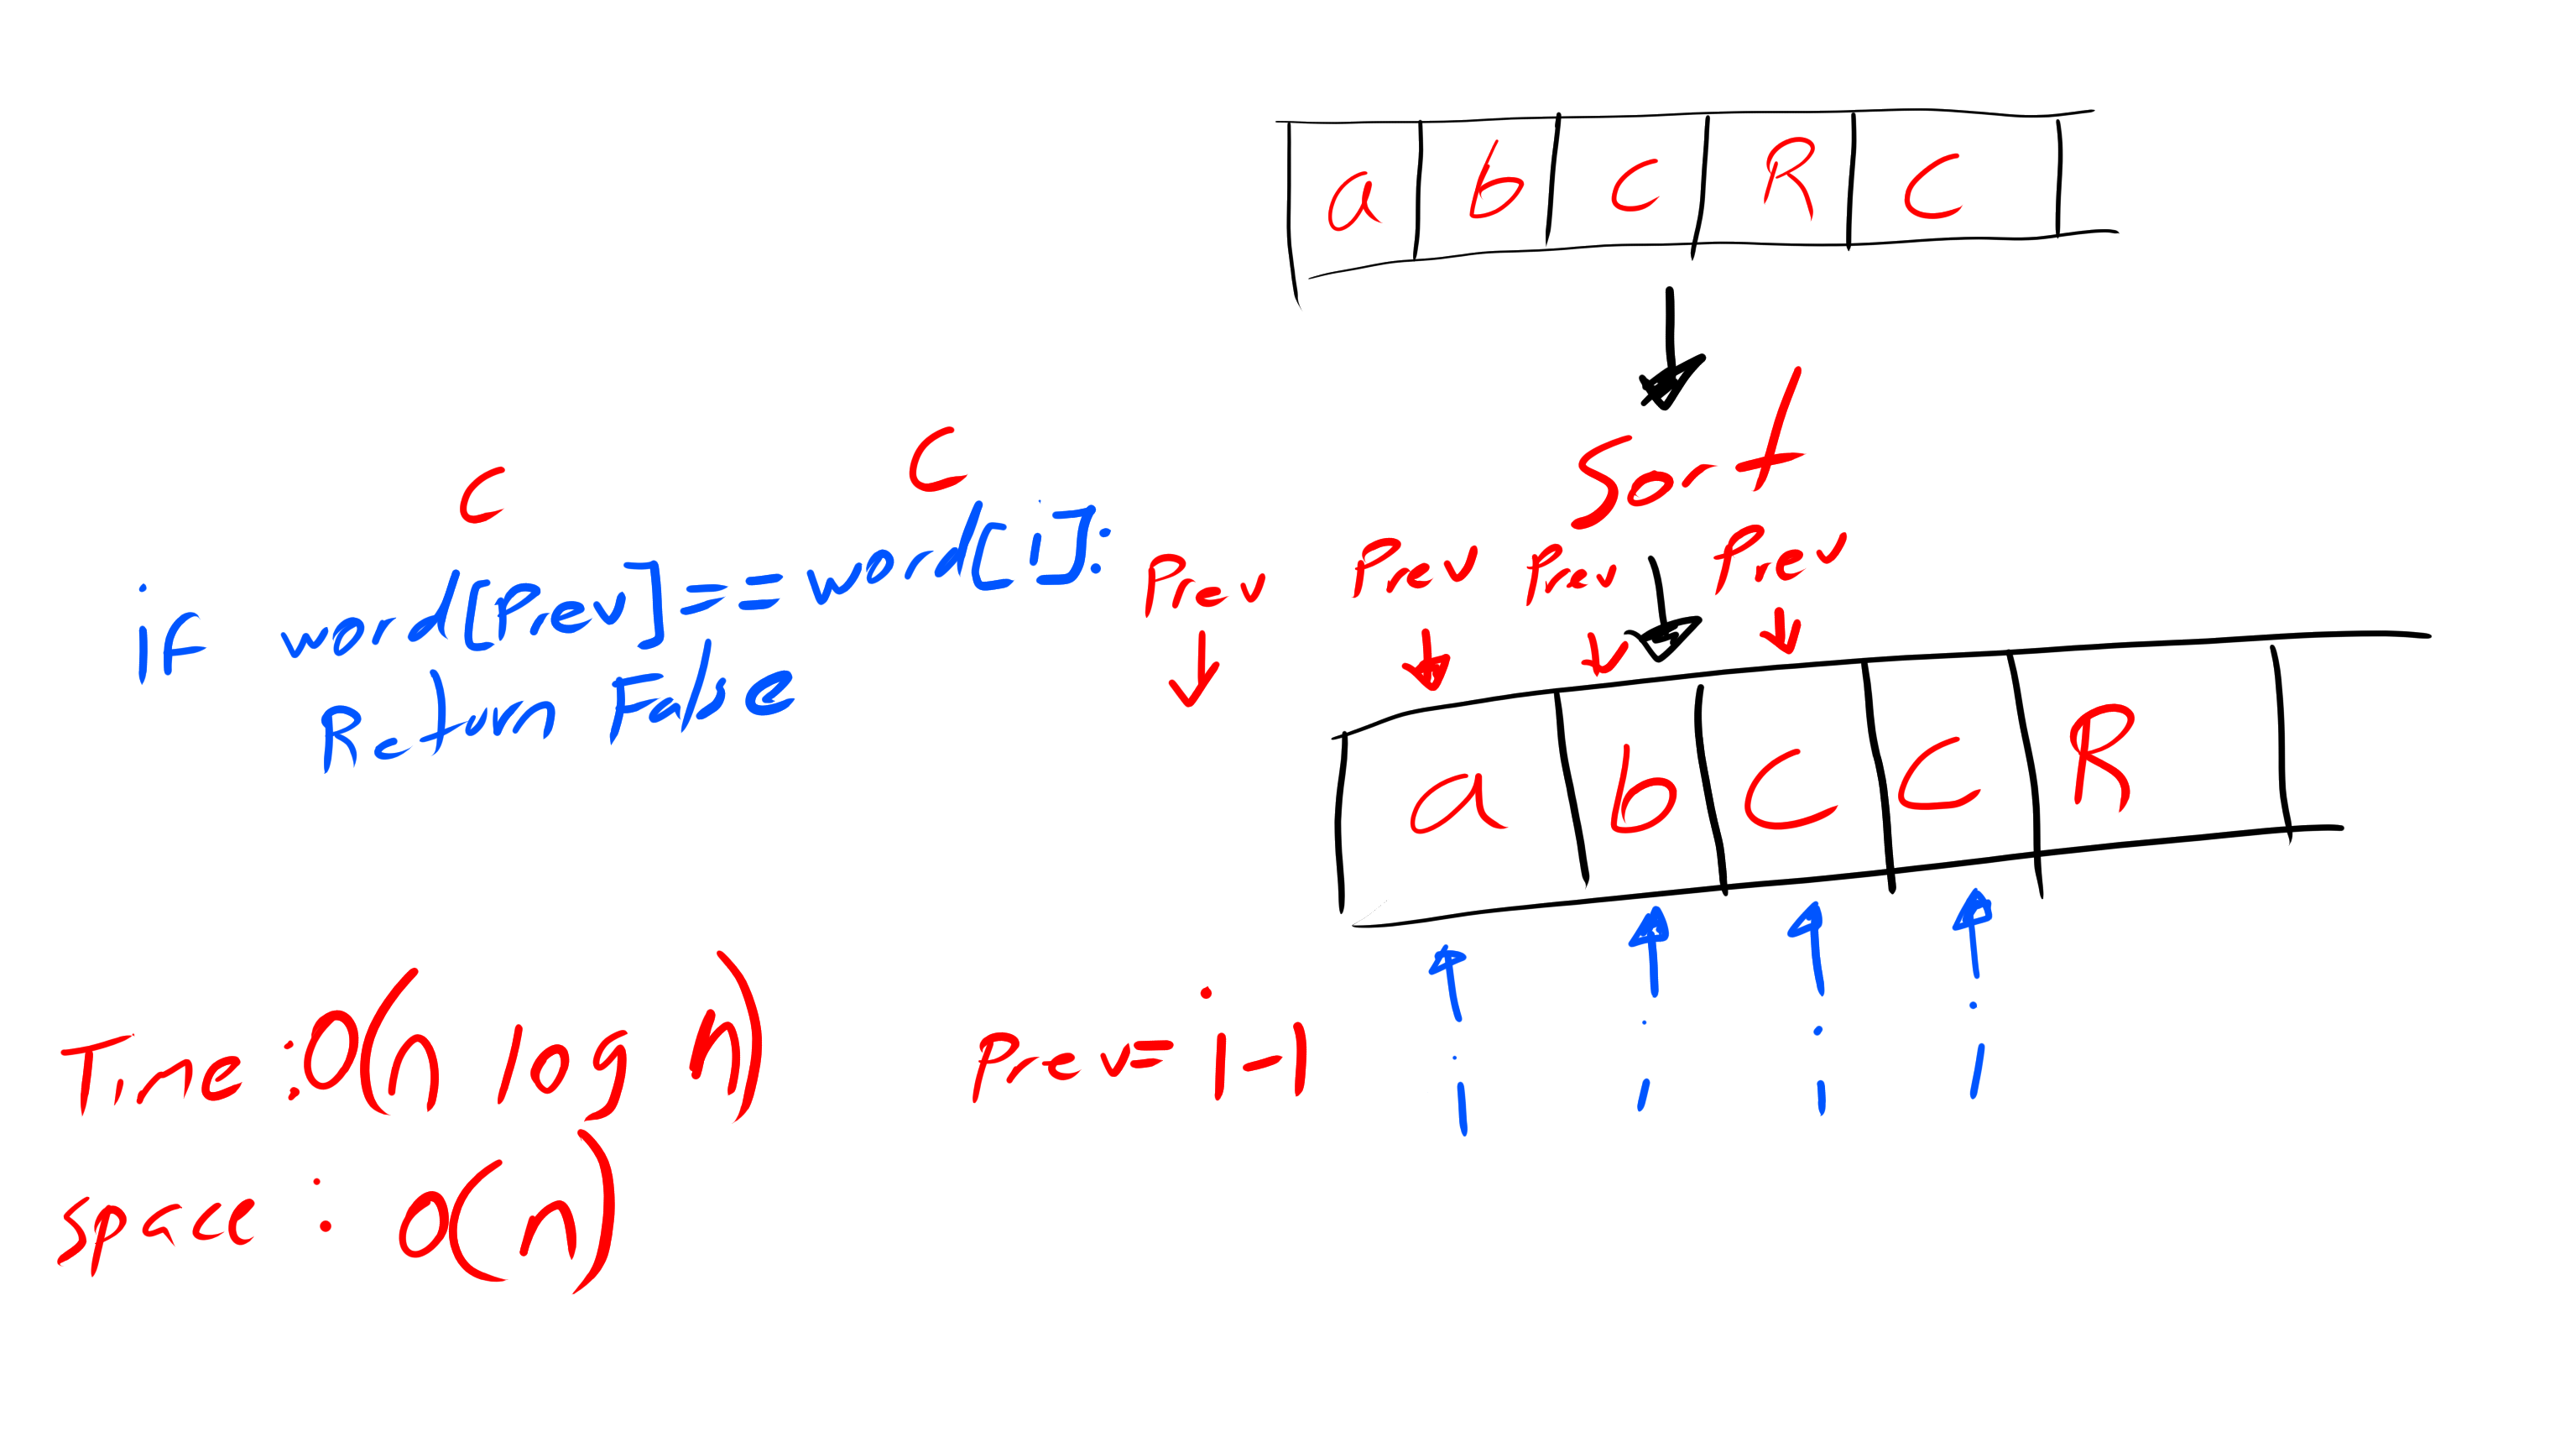 a b c R c
Sort
c c
if word[Prev]==word[i]:
Return False
Prev Prev Prev Prev
a b c c R
i i i i
Prev=i-1
Time:O(n log n)
space : O(n)